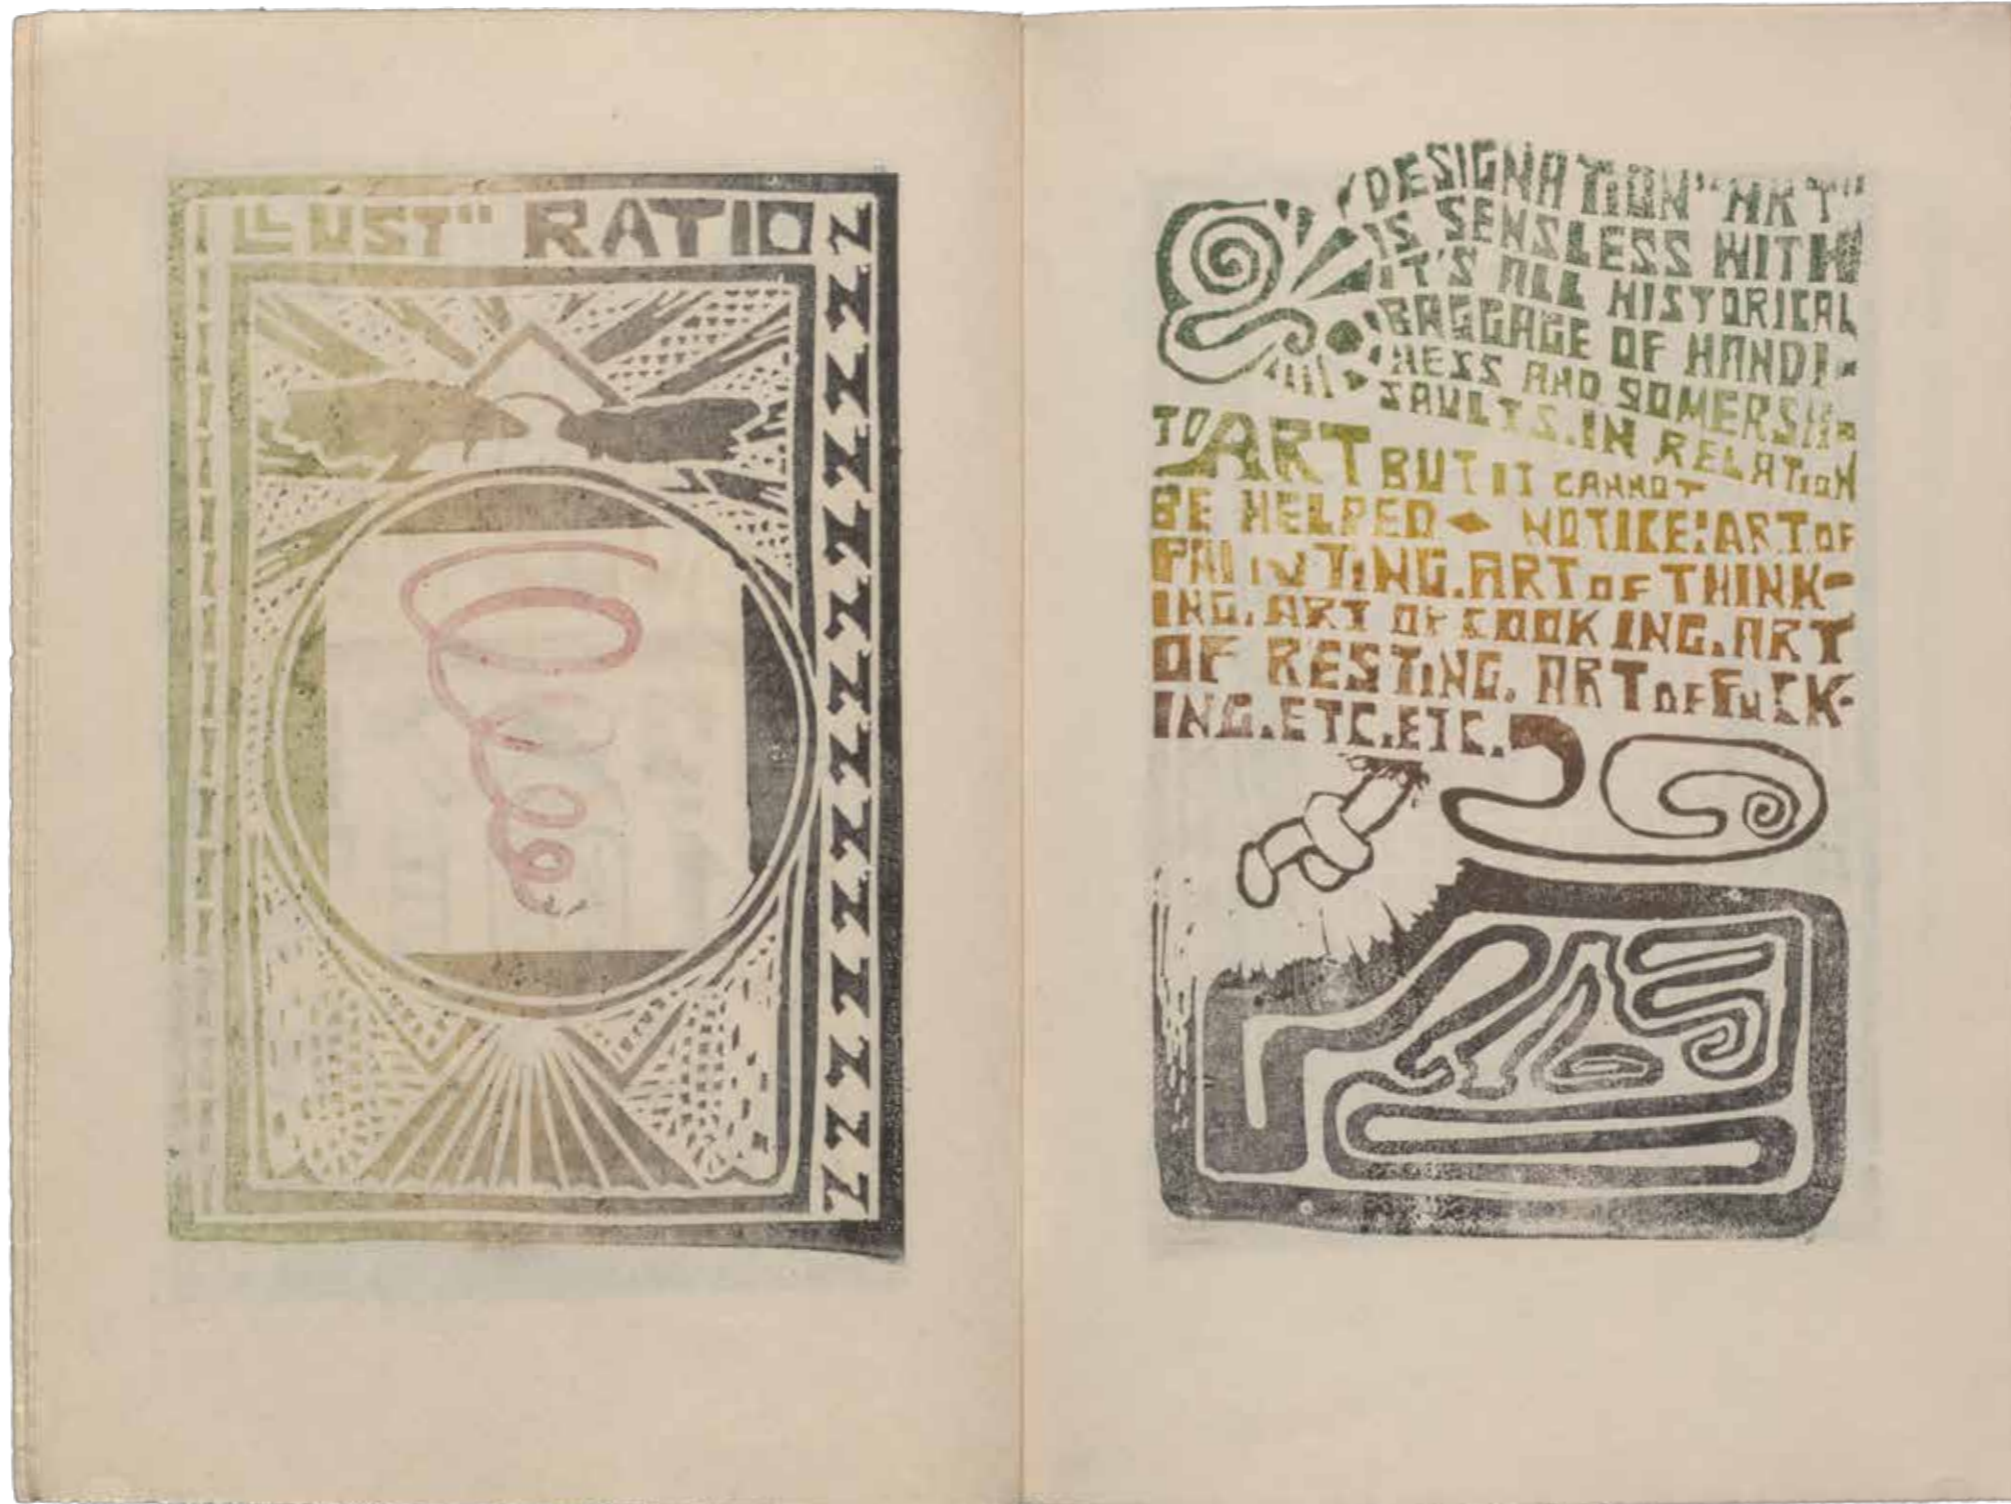 ILLUST" RATIO
DESIGNATION "ART"
IS SENSLESS WITH
IT'S ALL HISTORICAL
BAGGAGE OF HANDI-
NESS AND SOMERSA-
SAULTS. IN RELATION
TO ART BUT IT CANNOT
BE HELPED ◆ NOTICE: ART OF
PAINTING. ART OF THINK-
ING. ART OF COOKING. ART
OF RESTING. ART OF FUCK-
ING. ETC. ETC.